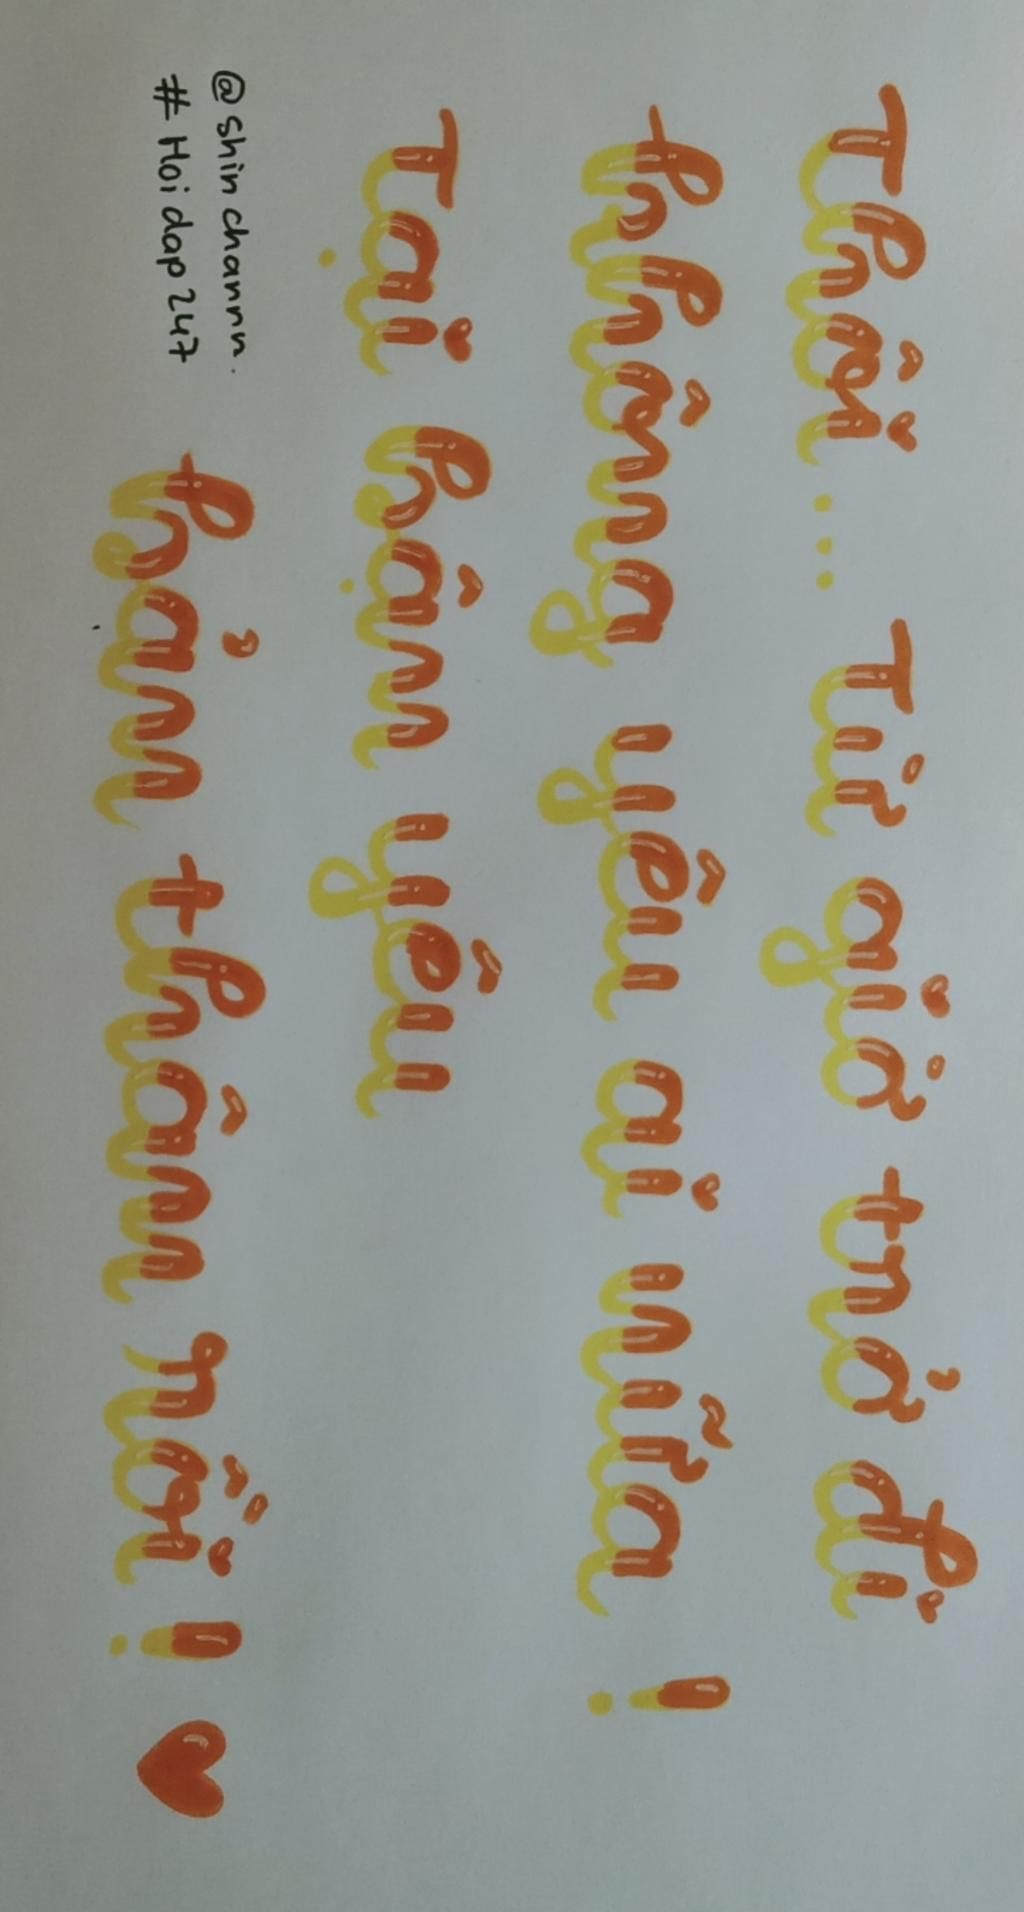 Thôi... Từ giờ trở đi
không yêu ai nữa !
Tại bận yêu
bản thân rồi !
@shinchannn.
#Hoidap247